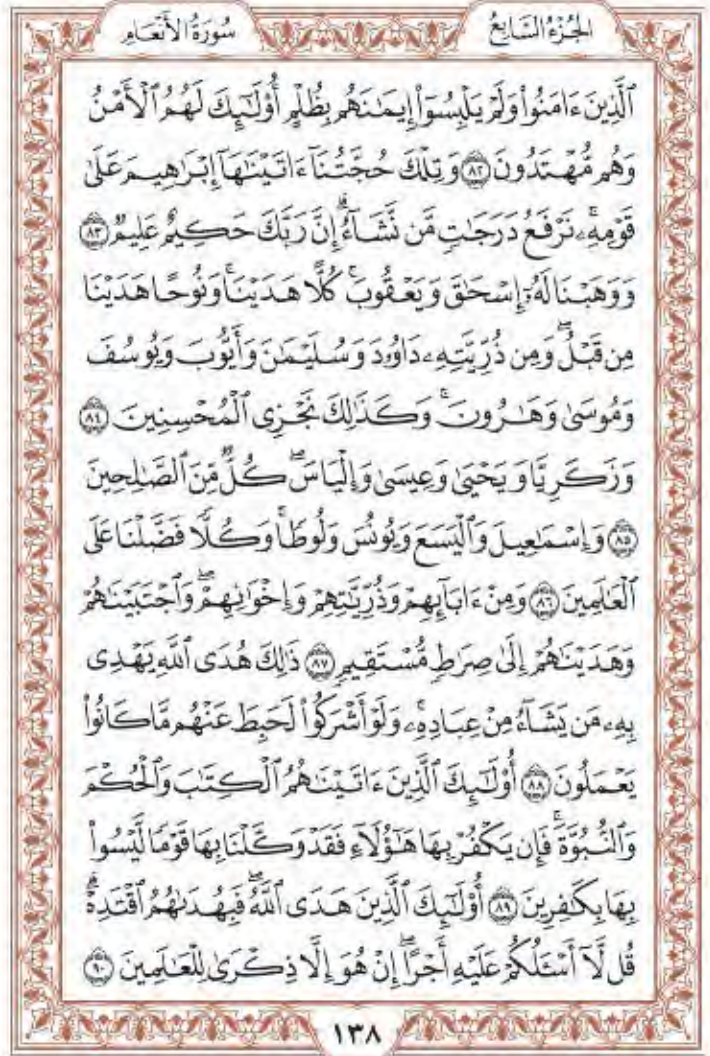 الجُزْءُ السَّابِعُ
سُورَةُ الأَنْعَامِ
ٱلَّذِينَ ءَامَنُواْ وَلَمْ يَلْبِسُوٓاْ إِيمَٰنَهُم بِظُلْمٍ أُوْلَٰٓئِكَ لَهُمُ ٱلْأَمْنُ
وَهُم مُّهْتَدُونَ ۝٨٢ وَتِلْكَ حُجَّتُنَآ ءَاتَيْنَٰهَآ إِبْرَٰهِيمَ عَلَىٰ
قَوْمِهِۦۚ نَرْفَعُ دَرَجَٰتٍ مَّن نَّشَآءُۗ إِنَّ رَبَّكَ حَكِيمٌ عَلِيمٌ ۝٨٣
وَوَهَبْنَا لَهُۥٓ إِسْحَٰقَ وَيَعْقُوبَۚ كُلًّا هَدَيْنَاۚ وَنُوحًا هَدَيْنَا
مِن قَبْلُۖ وَمِن ذُرِّيَّتِهِۦ دَاوُۥدَ وَسُلَيْمَٰنَ وَأَيُّوبَ وَيُوسُفَ
وَمُوسَىٰ وَهَٰرُونَۚ وَكَذَٰلِكَ نَجْزِى ٱلْمُحْسِنِينَ ۝٨٤
وَزَكَرِيَّا وَيَحْيَىٰ وَعِيسَىٰ وَإِلْيَاسَۖ كُلٌّ مِّنَ ٱلصَّٰلِحِينَ
۝٨٥ وَإِسْمَٰعِيلَ وَٱلْيَسَعَ وَيُونُسَ وَلُوطًاۚ وَكُلًّا فَضَّلْنَا عَلَى
ٱلْعَٰلَمِينَ ۝٨٦ وَمِنْ ءَابَآئِهِمْ وَذُرِّيَّٰتِهِمْ وَإِخْوَٰنِهِمْۖ وَٱجْتَبَيْنَٰهُمْ
وَهَدَيْنَٰهُمْ إِلَىٰ صِرَٰطٍ مُّسْتَقِيمٍ ۝٨٧ ذَٰلِكَ هُدَى ٱللَّهِ يَهْدِى
بِهِۦ مَن يَشَآءُ مِنْ عِبَادِهِۦۚ وَلَوْ أَشْرَكُواْ لَحَبِطَ عَنْهُم مَّا كَانُواْ
يَعْمَلُونَ ۝٨٨ أُوْلَٰٓئِكَ ٱلَّذِينَ ءَاتَيْنَٰهُمُ ٱلْكِتَٰبَ وَٱلْحُكْمَ
وَٱلنُّبُوَّةَۚ فَإِن يَكْفُرْ بِهَا هَٰٓؤُلَآءِ فَقَدْ وَكَّلْنَا بِهَا قَوْمًا لَّيْسُواْ
بِهَا بِكَٰفِرِينَ ۝٨٩ أُوْلَٰٓئِكَ ٱلَّذِينَ هَدَى ٱللَّهُۖ فَبِهُدَىٰهُمُ ٱقْتَدِهْۗ
قُل لَّآ أَسْـَٔلُكُمْ عَلَيْهِ أَجْرًاۖ إِنْ هُوَ إِلَّا ذِكْرَىٰ لِلْعَٰلَمِينَ ۝٩٠
١٣٨